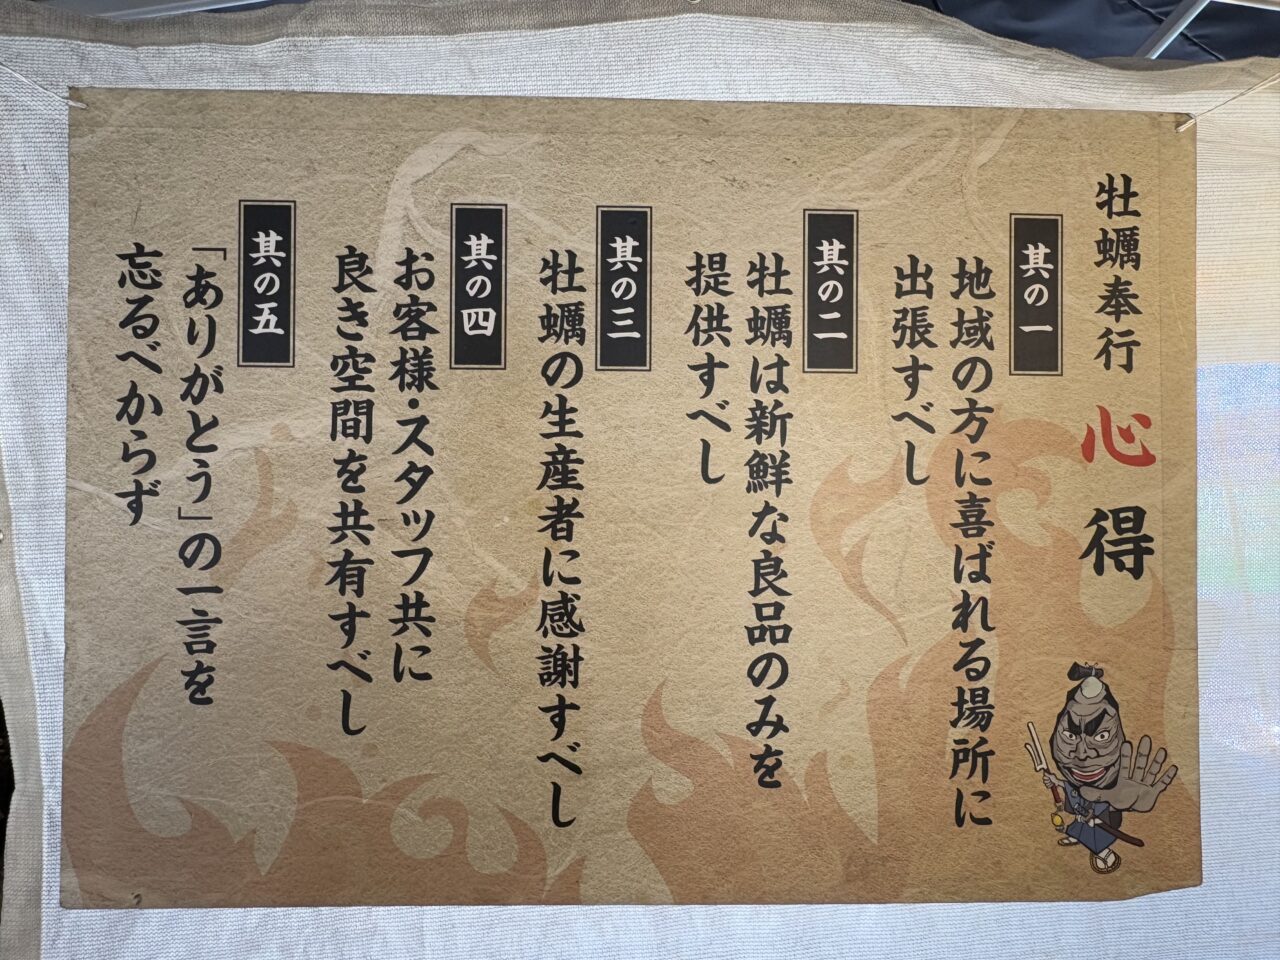 牡蠣奉行 心得
其の一
地域の方に喜ばれる場所に
出張すべし
其の二
牡蠣は新鮮な良品のみを
提供すべし
其の三
牡蠣の生産者に感謝すべし
其の四
お客様・スタッフ共に
良き空間を共有すべし
其の五
「ありがとう」の一言を
忘るべからず